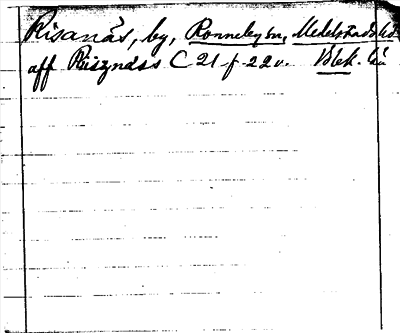 Risanäs, by, Ronneby sn, Medelstads hd
aff Risznäss C 21 f. 22 v. Blek. län